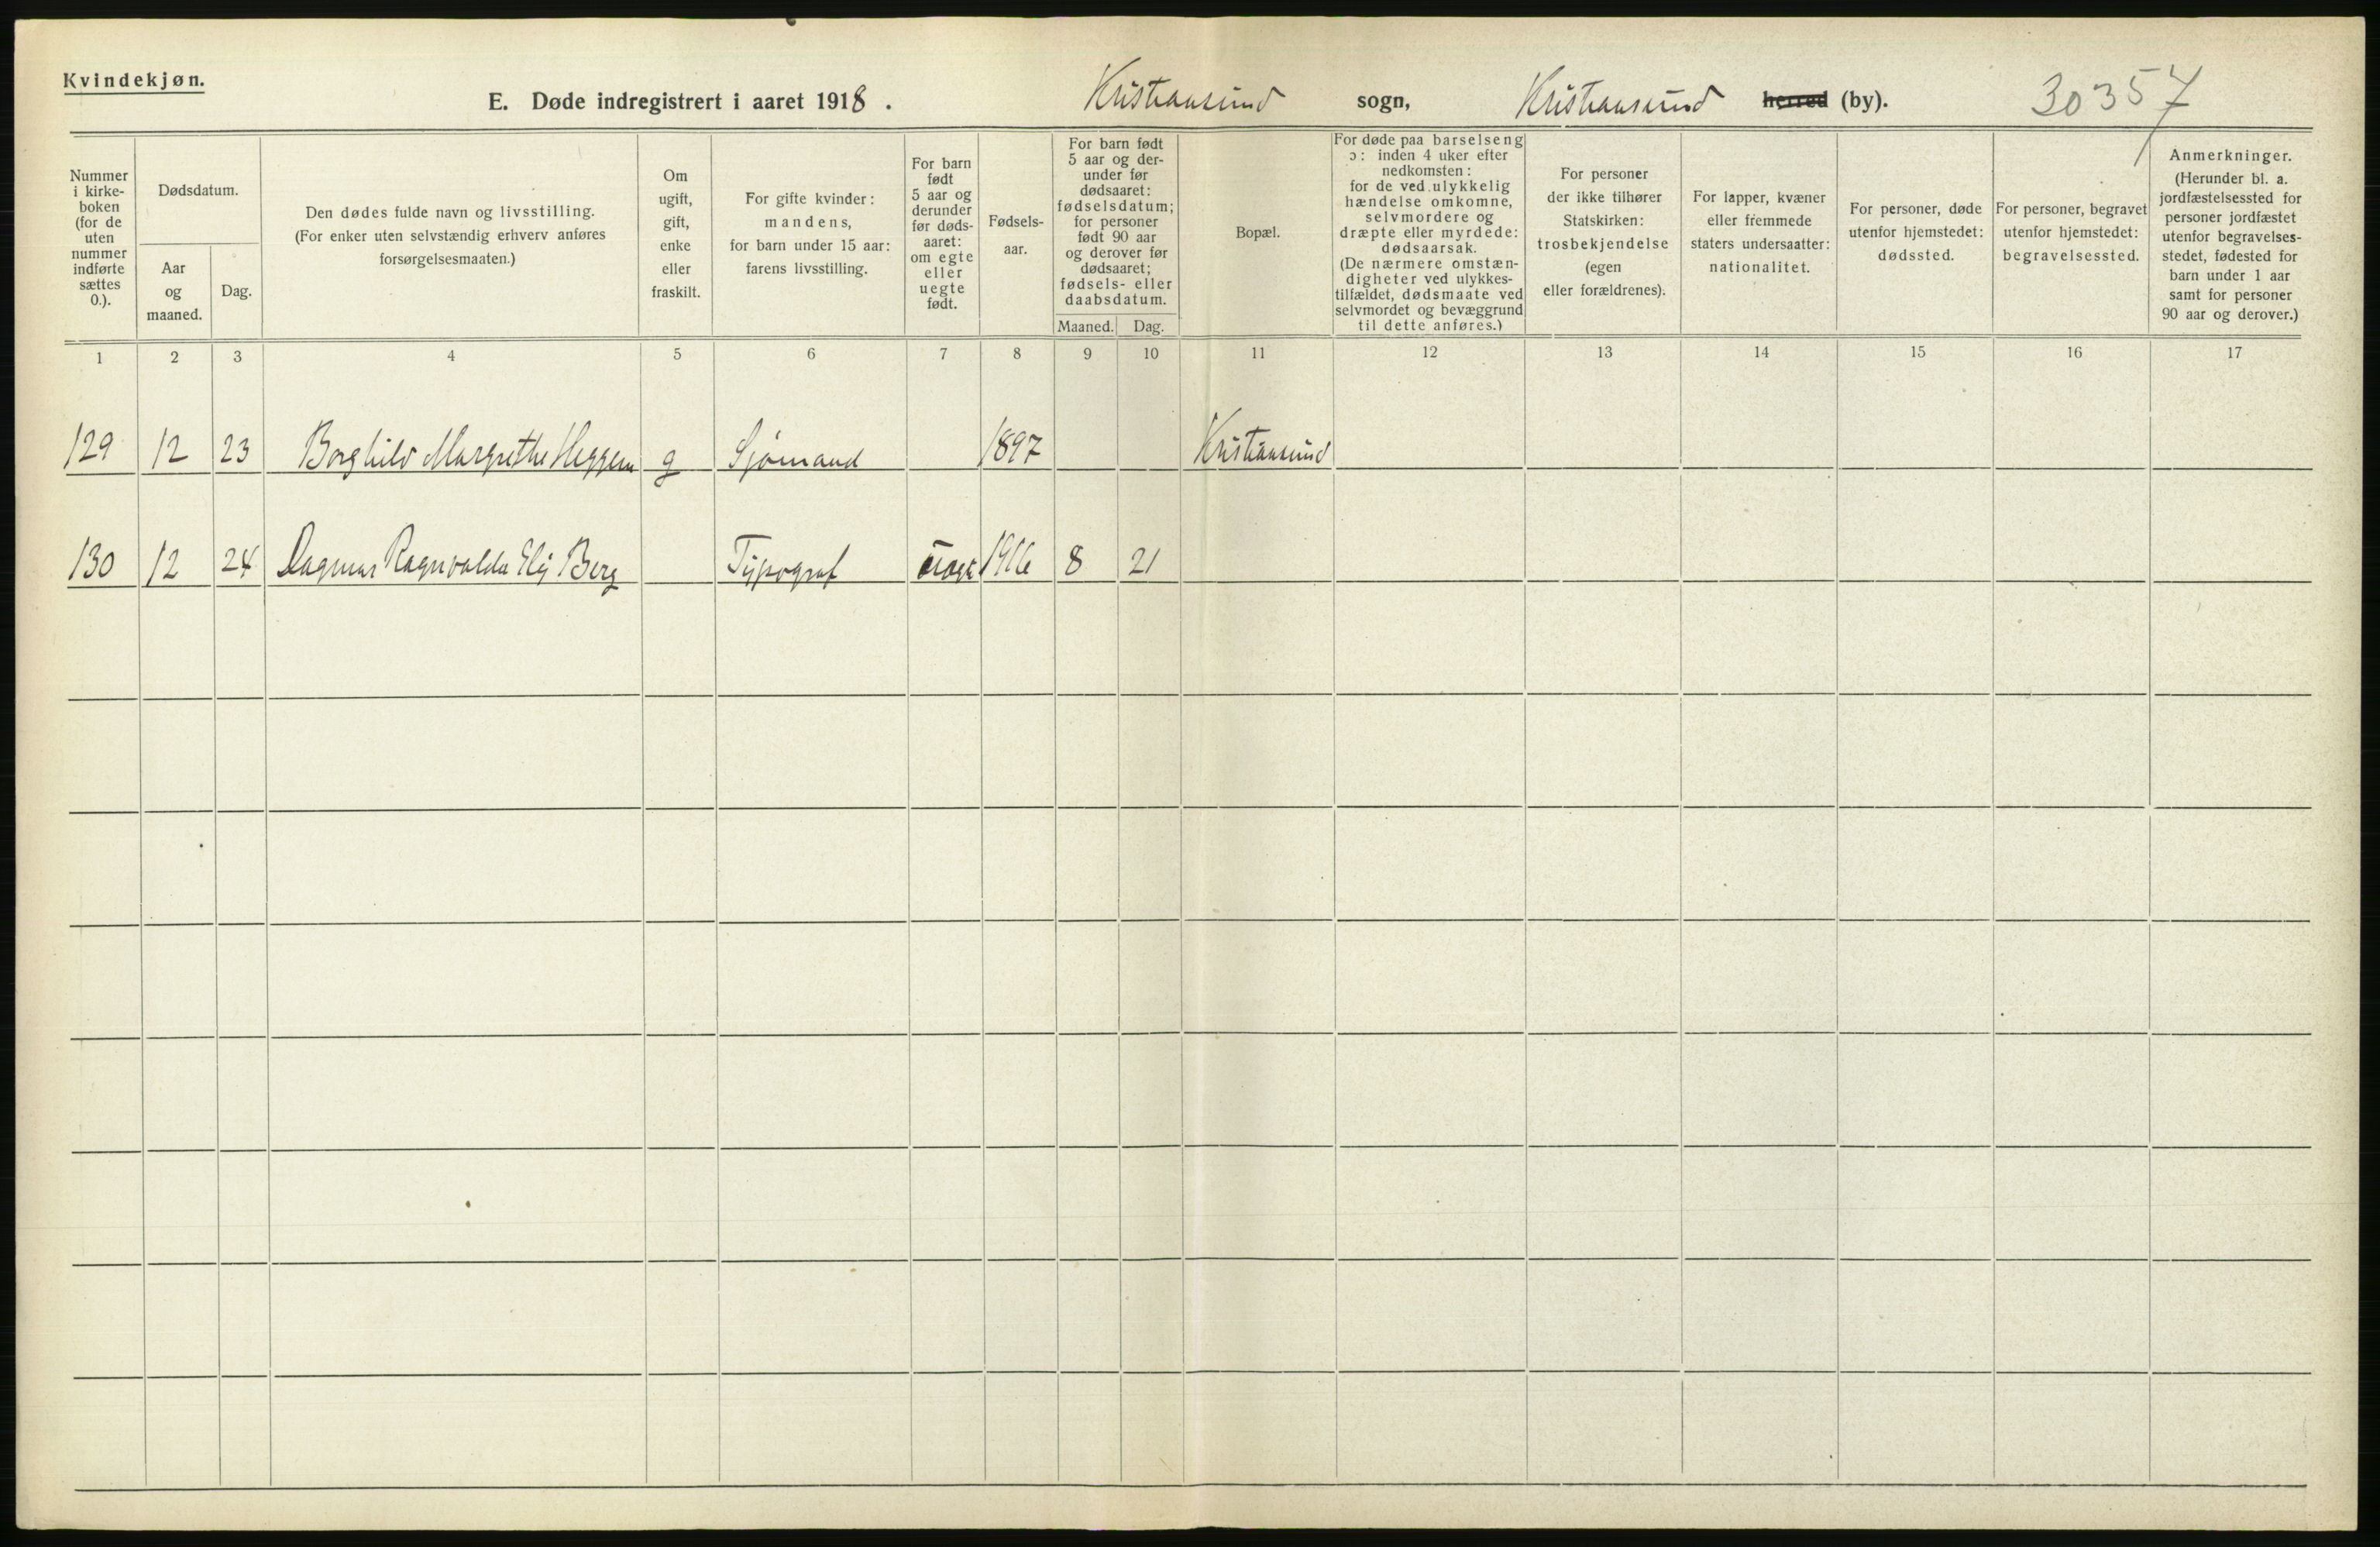 Kvindekjøn.
E. Døde indregistrert i aaret 1918. Kristiansund sogn, Kristiansund herred (by). 30357
Nummer i kirkeboken (for de uten nummer indførte sættes 0.).
Dødsdatum.
Aar og maaned.
Dag.
Den dødes fulde navn og livsstilling.
(For enker uten selvstændig erhverv anføres
forsørgelsesmaaten.)
Om
ugift,
gift,
enke
eller
fraskilt.
For gifte kvinder:
mandens,
for barn under 15 aar:
farens livsstilling.
For barn
født
5 aar og
derunder
før døds-
aaret:
om egte
eller
uegte
født.
Fødsels-
aar.
For barn født
5 aar og der-
under før
dødsaaret:
fødselsdatum;
for personer
født 90 aar
og derover før
dødsaaret;
fødsels- eller
daabsdatum.
Maaned. Dag.
Bopæl.
For døde paa barselseng
ɔ: inden 4 uker efter
nedkomsten:
for de ved ulykkelig
hændelse omkomne,
selvmordere og
dræpte eller myrdede:
dødsaarsak.
(De nærmere omstæn-
digheter ved ulykkes-
tilfældet, dødsmaate ved
selvmordet og bevæggrund
til dette anføres.)
For personer
der ikke tilhører
Statskirken:
trosbekjendelse
(egen
eller forældrenes).
For lapper, kvæner
eller fremmede
staters undersaatter:
nationalitet.
For personer, døde
utenfor hjemstedet:
dødssted.
For personer, begravet
utenfor hjemstedet:
begravelsessted.
Anmerkninger.
(Herunder bl. a.
jordfæstelsessted for
personer jordfæstet
utenfor begravelses-
stedet, fødested for
barn under 1 aar
samt for personer
90 aar og derover.)
1 2 3 4 5 6 7 8 9 10 11 12 13 14 15 16 17
129 12 23 Borghild Margrethe Heggem g Sjømand 1897 Kristiansund
130 12 24 Dagmar Ragnvalda Elly Berg Typograf 1916 8 21